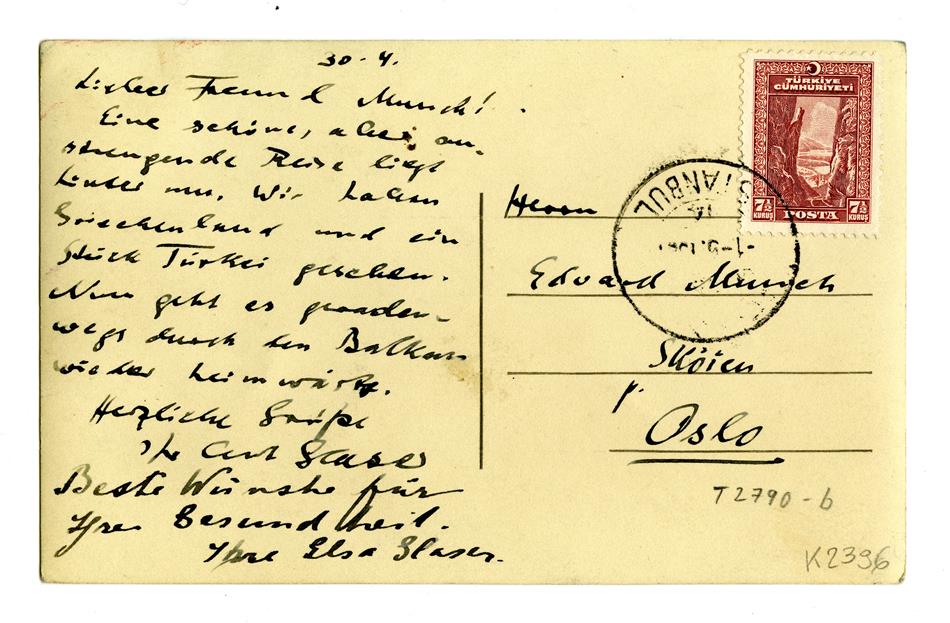 30. 4.
Lieber Freund Munch!
Eine schöne, aber an-
strengende Reise liegt
hinter uns. Wir haben
Griechenland und ein
Stück Türkei gesehen.
Nun geht es geraden-
wegs durch den Balkan
wieder heimwärts.
Herzliche Grüße
Ihr Curt Glaser
Beste Wünsche für
Ihre Gesundheit.
Ihre Elsa Glaser.
TÜRKİYE
CÜMHURİYETİ
7½ KURUŞ POSTA 7½ KURUŞ
ISTANBUL
Herrn
Edvard Munch
Sköien
p.
Oslo
T2790-b
K2396